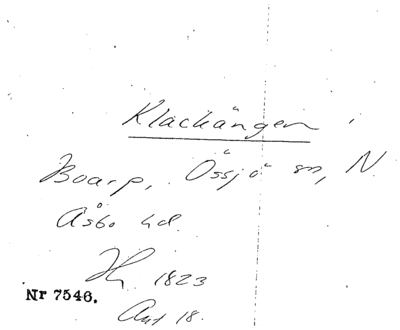 Klackängen
Boarp, Össjö sn, N
Åsbo hd.
1823
Nr 7546.
18.